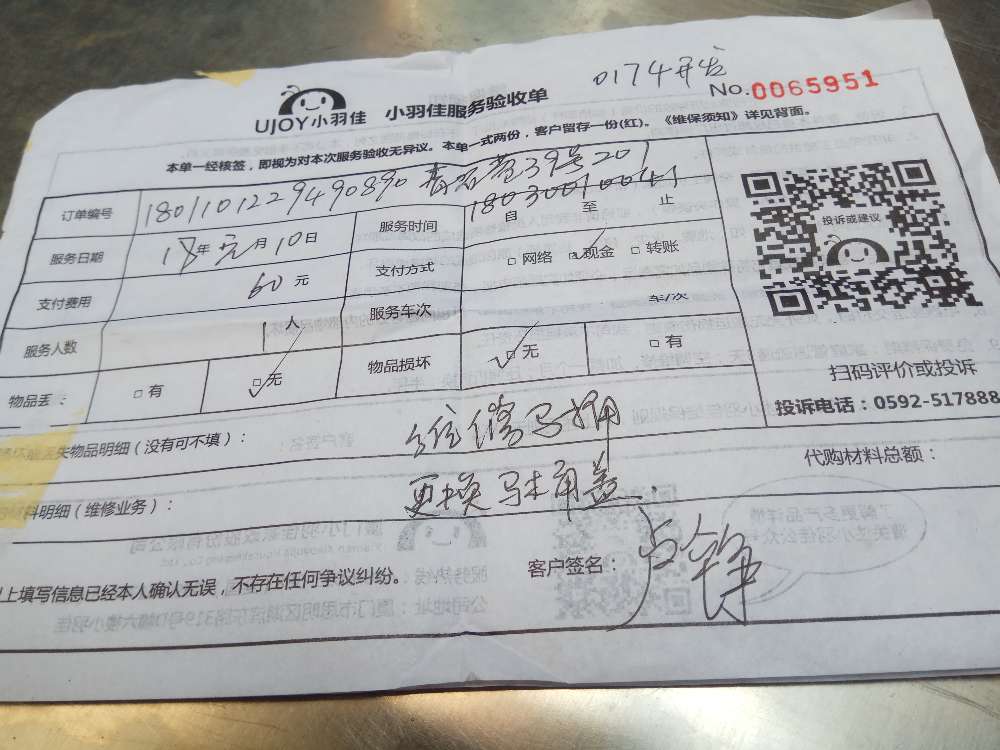 0174开发
No.0065951
UJOY小羽佳 小羽佳服务验收单
本单一经核签，即视为对本次服务验收无异议。本单一式两份，客户留存一份(红)。《维保须知》详见背面。
订单编号 180110122949089 39号201
18030010041
服务日期 18年元月10日 服务时间 自 至 止
支付费用 60元 支付方式 □网络 ☑现金 □转账
服务人数 1人 服务车次 车/次
物品丢 : □有 ☑无 物品损坏 ☑无 □有
投诉或建议
扫码评价或投诉
投诉电话：0592-517888
失物品明细（没有可不填）： 维修马桶
料明细（维修业务）： 更换马木角盖 代购材料总额：
上填写信息已经本人确认无误，不存在任何争议纠纷。 客户签名：